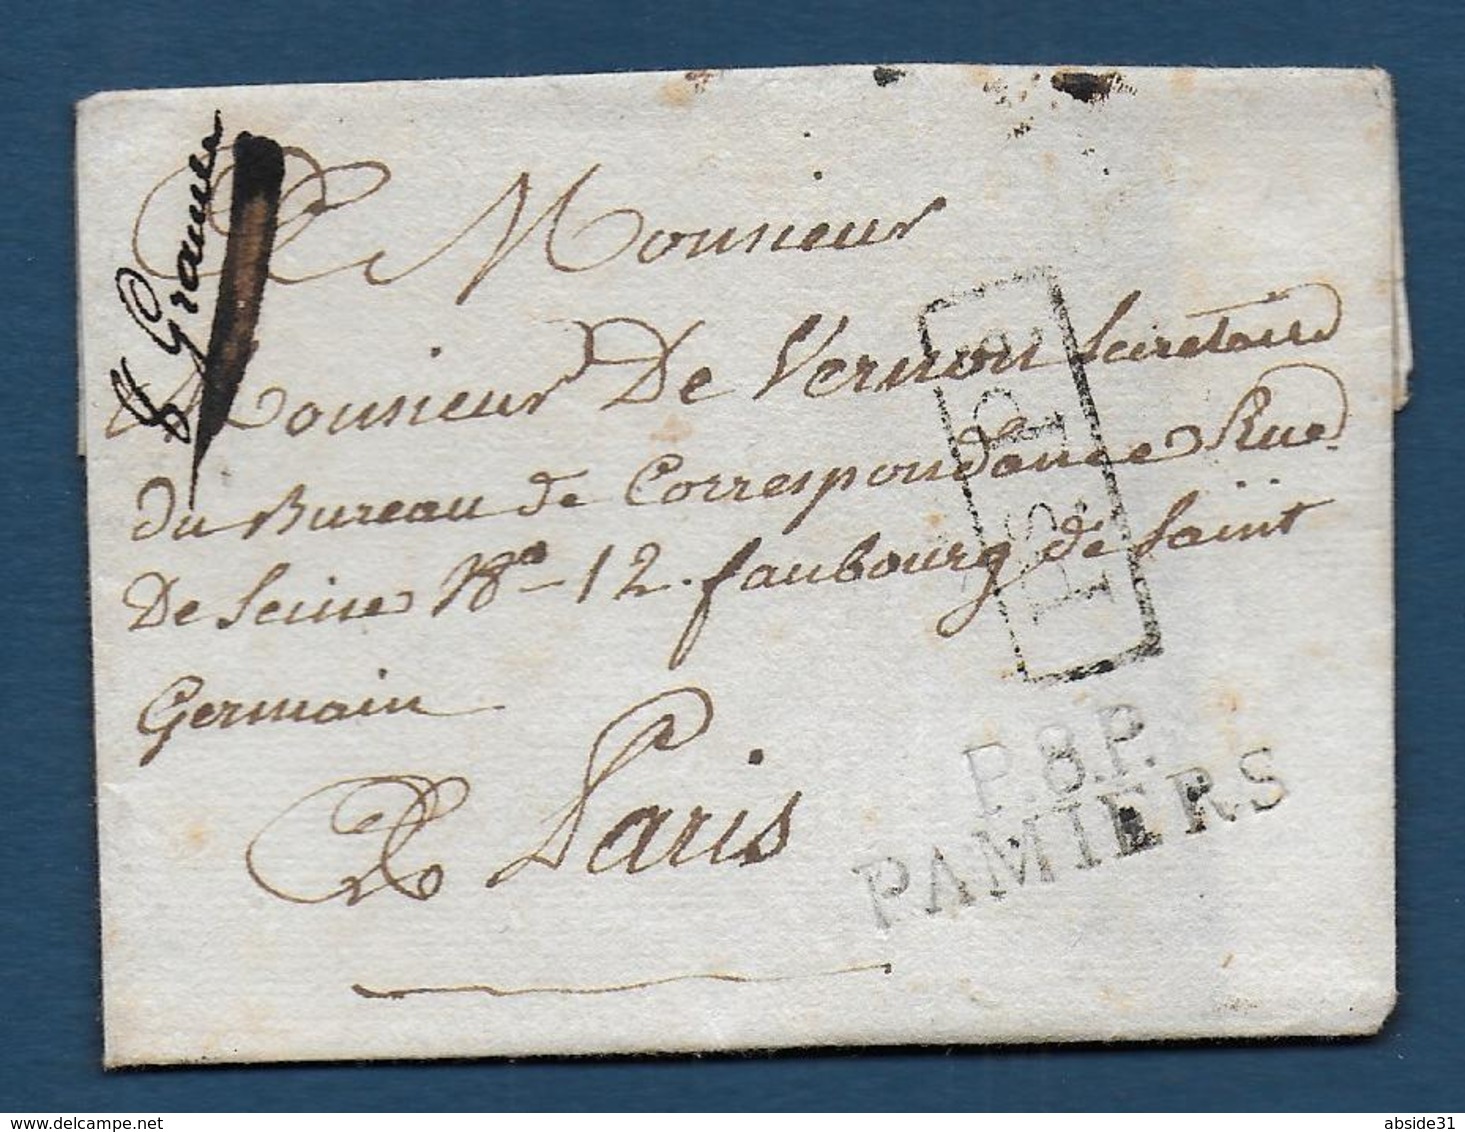 8 Grammes
A Monsieur
Monsieur De Vernon Secretaire
du Bureau de Correspondance Rue
De Seine No 12 faubourg de Saint
Germain
A Paris
P.P.P.P.
P.8.P.
PAMIERS
delcampe.net
abside31